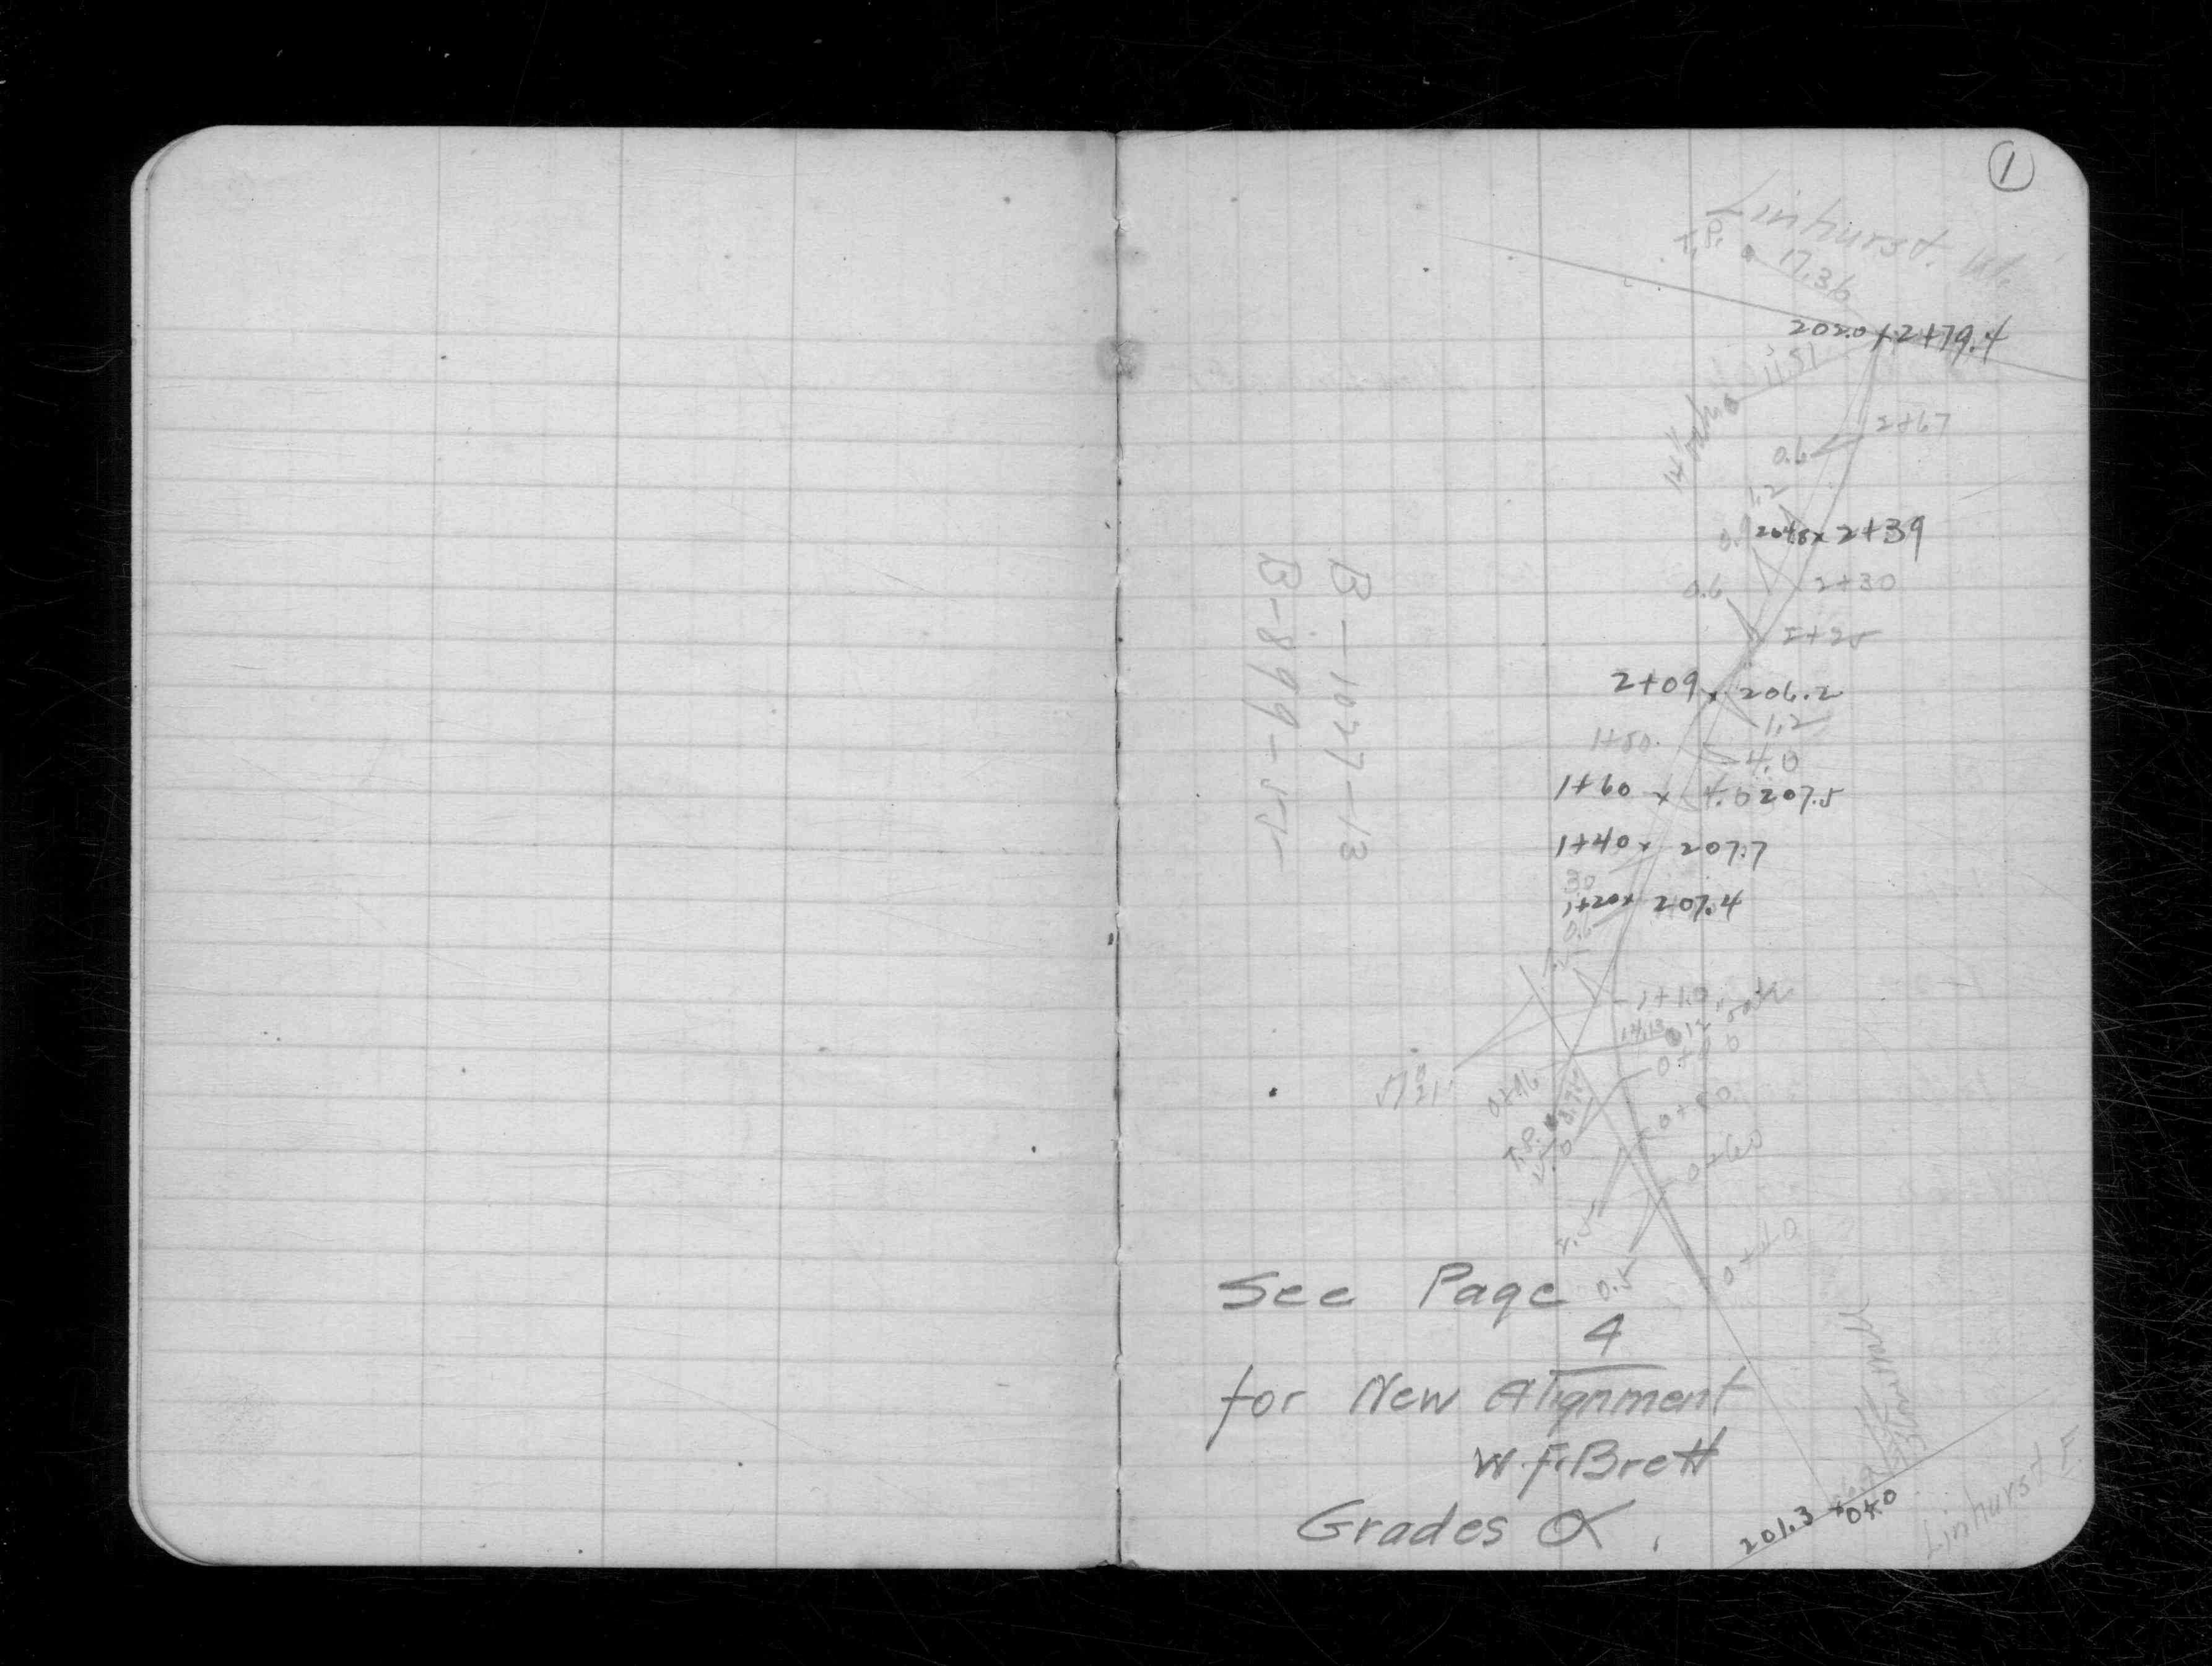 1
Linhurst
T.P. 17.36
202.0 x 2+79.4
11.51
2+67
0.6
1.2
x 2+39
0.6
2+30
2+09 x 206.2
1.2
1+80
4.0
1+60 x 4.0 207.5
1+40 x 207.7
30
1+20x 207.4
0.6
1+10
14.13
0+80
T.P.
0+60
0+40
0.5
B-1077-13
B-899-55
See Page
4
for New Alignment
W.F. Brett
Grades OK.
201.3 x 0+0
Linhurst